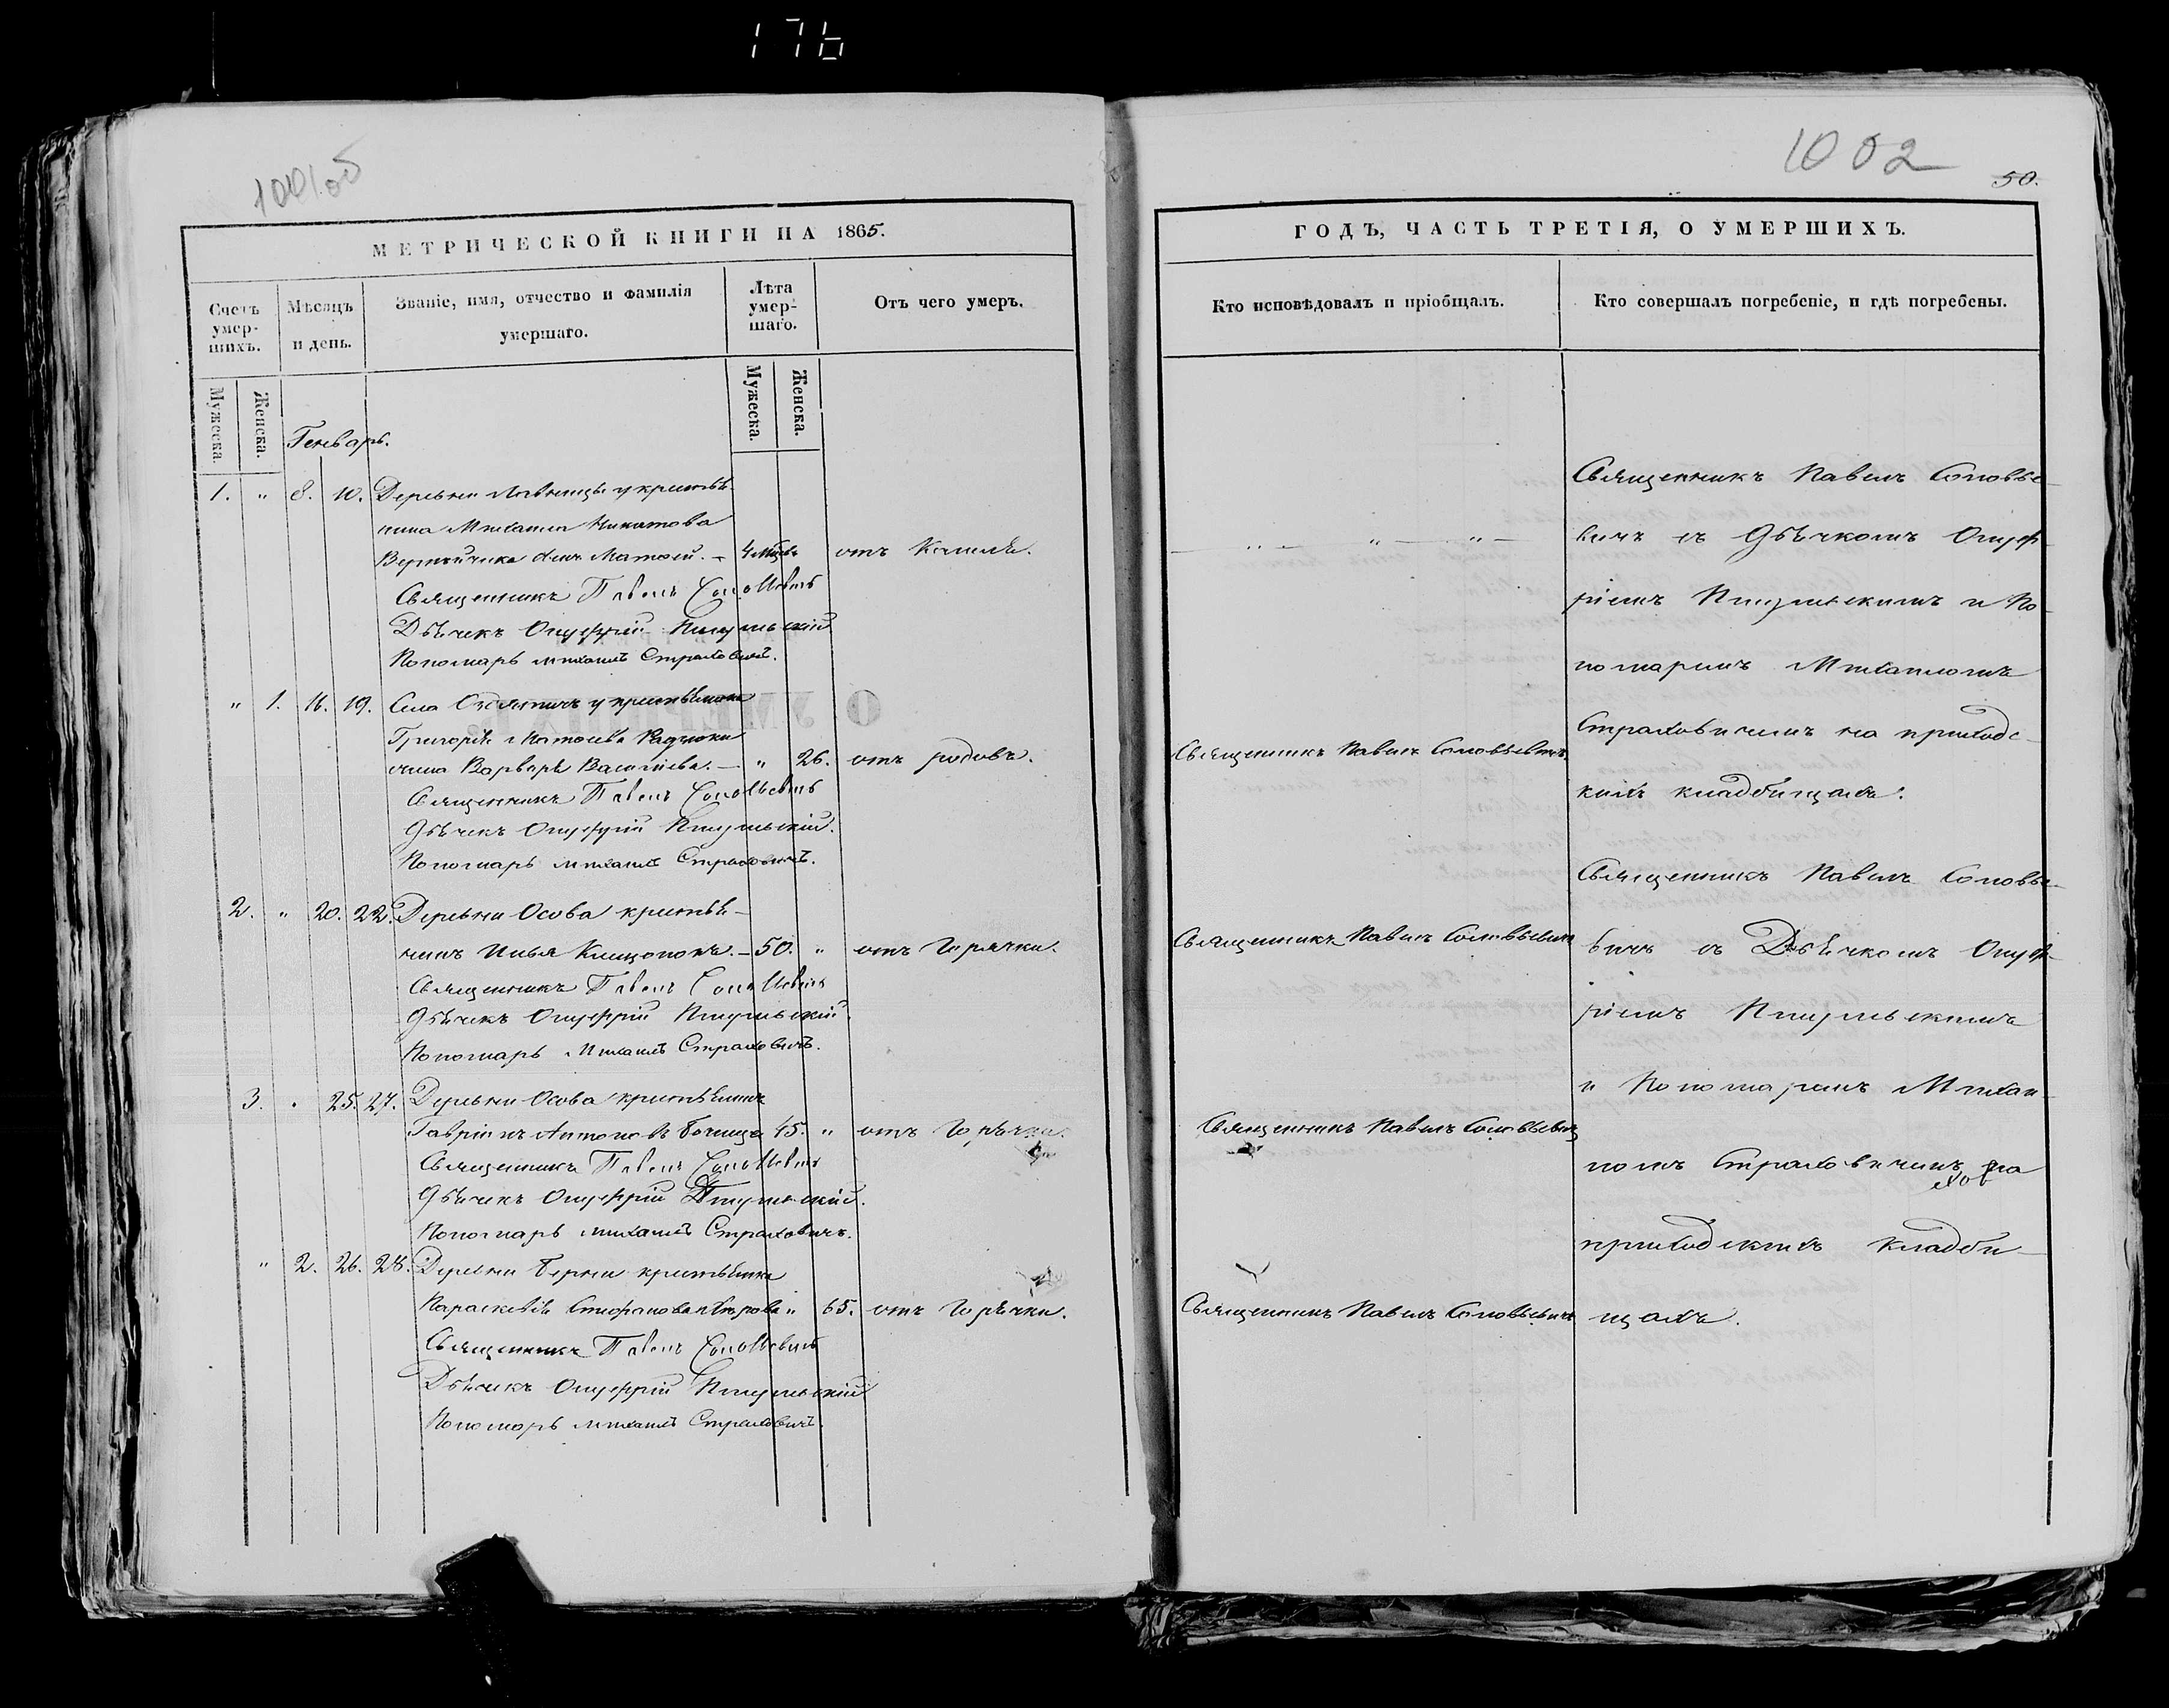 176
1001 об
1002
50.
МЕТРИЧЕСКОЙ КНИГИ НА 1865.
Счетъ умер-шихъ.
Мѣсяцъ и день.
Званіе, имя, отчество и фамилія умершаго.
Лѣта умер-шаго.
Отъ чего умеръ.
Мужеска.
Женска.
Мужеска.
Женска.
Генварь.
1. " 8. 10. Деревни у крестья-
нина Михаила
сынъ Матѳей. – 4 мѣсяц. отъ Кашля.
Священникъ Павелъ Соловьевичъ
Дьячекъ Онуфрій
Пономарь Михаилъ Страховичъ.
" 1. 16. 19. Села у крестьянина
Григорія Матѳеева
жена Варвара Васильева. – " 26. отъ родовъ.
Священникъ Павелъ Соловьевичъ
Дьячекъ Онуфрій
Пономарь Михаилъ Страховичъ.
2. " 20. 22. Деревни Осова крестья-
нинъ Илья – 50. " отъ Горячки.
Священникъ Павелъ Соловьевичъ
Дьячекъ Онуфрій
Пономарь Михаилъ Страховичъ.
3. " 25. 27. Деревни Осова крестьянинъ
Гавріилъ Антоновъ 45. " отъ Горячки.
Священникъ Павелъ Соловьевичъ
Дьячекъ Онуфрій
Пономарь Михаилъ Страховичъ.
" 2. 26. 28. Деревни крестьянка
Параскевія Стефанова " 65. отъ Горячки.
Священникъ Павелъ Соловьевичъ
Дьячекъ Онуфрій
Пономарь Михаилъ Страховичъ.
ГОДЪ, ЧАСТЬ ТРЕТІЯ, О УМЕРШИХЪ.
Кто исповѣдовалъ и пріобщалъ.
Кто совершалъ погребеніе, и гдѣ погребены.
– " – " – " –
Священникъ Павелъ Соловьевичъ.
Священникъ Павелъ Соловьевичъ
Священникъ Павелъ Соловьевичъ
Священникъ Павелъ Соловьевичъ
Священникъ Павелъ Соловье-
вичъ съ Дьячкомъ Онуф-
ріемъ и По-
номаремъ Михаиломъ
Страховичемъ на приходс-
кихъ кладбищахъ.
Священникъ Павелъ Соловье-
вичъ съ Дьячкомъ Онуф-
ріемъ
и Пономаремъ Михаи-
ломъ Страховичемъ на
приходскихъ кладби-
щахъ.